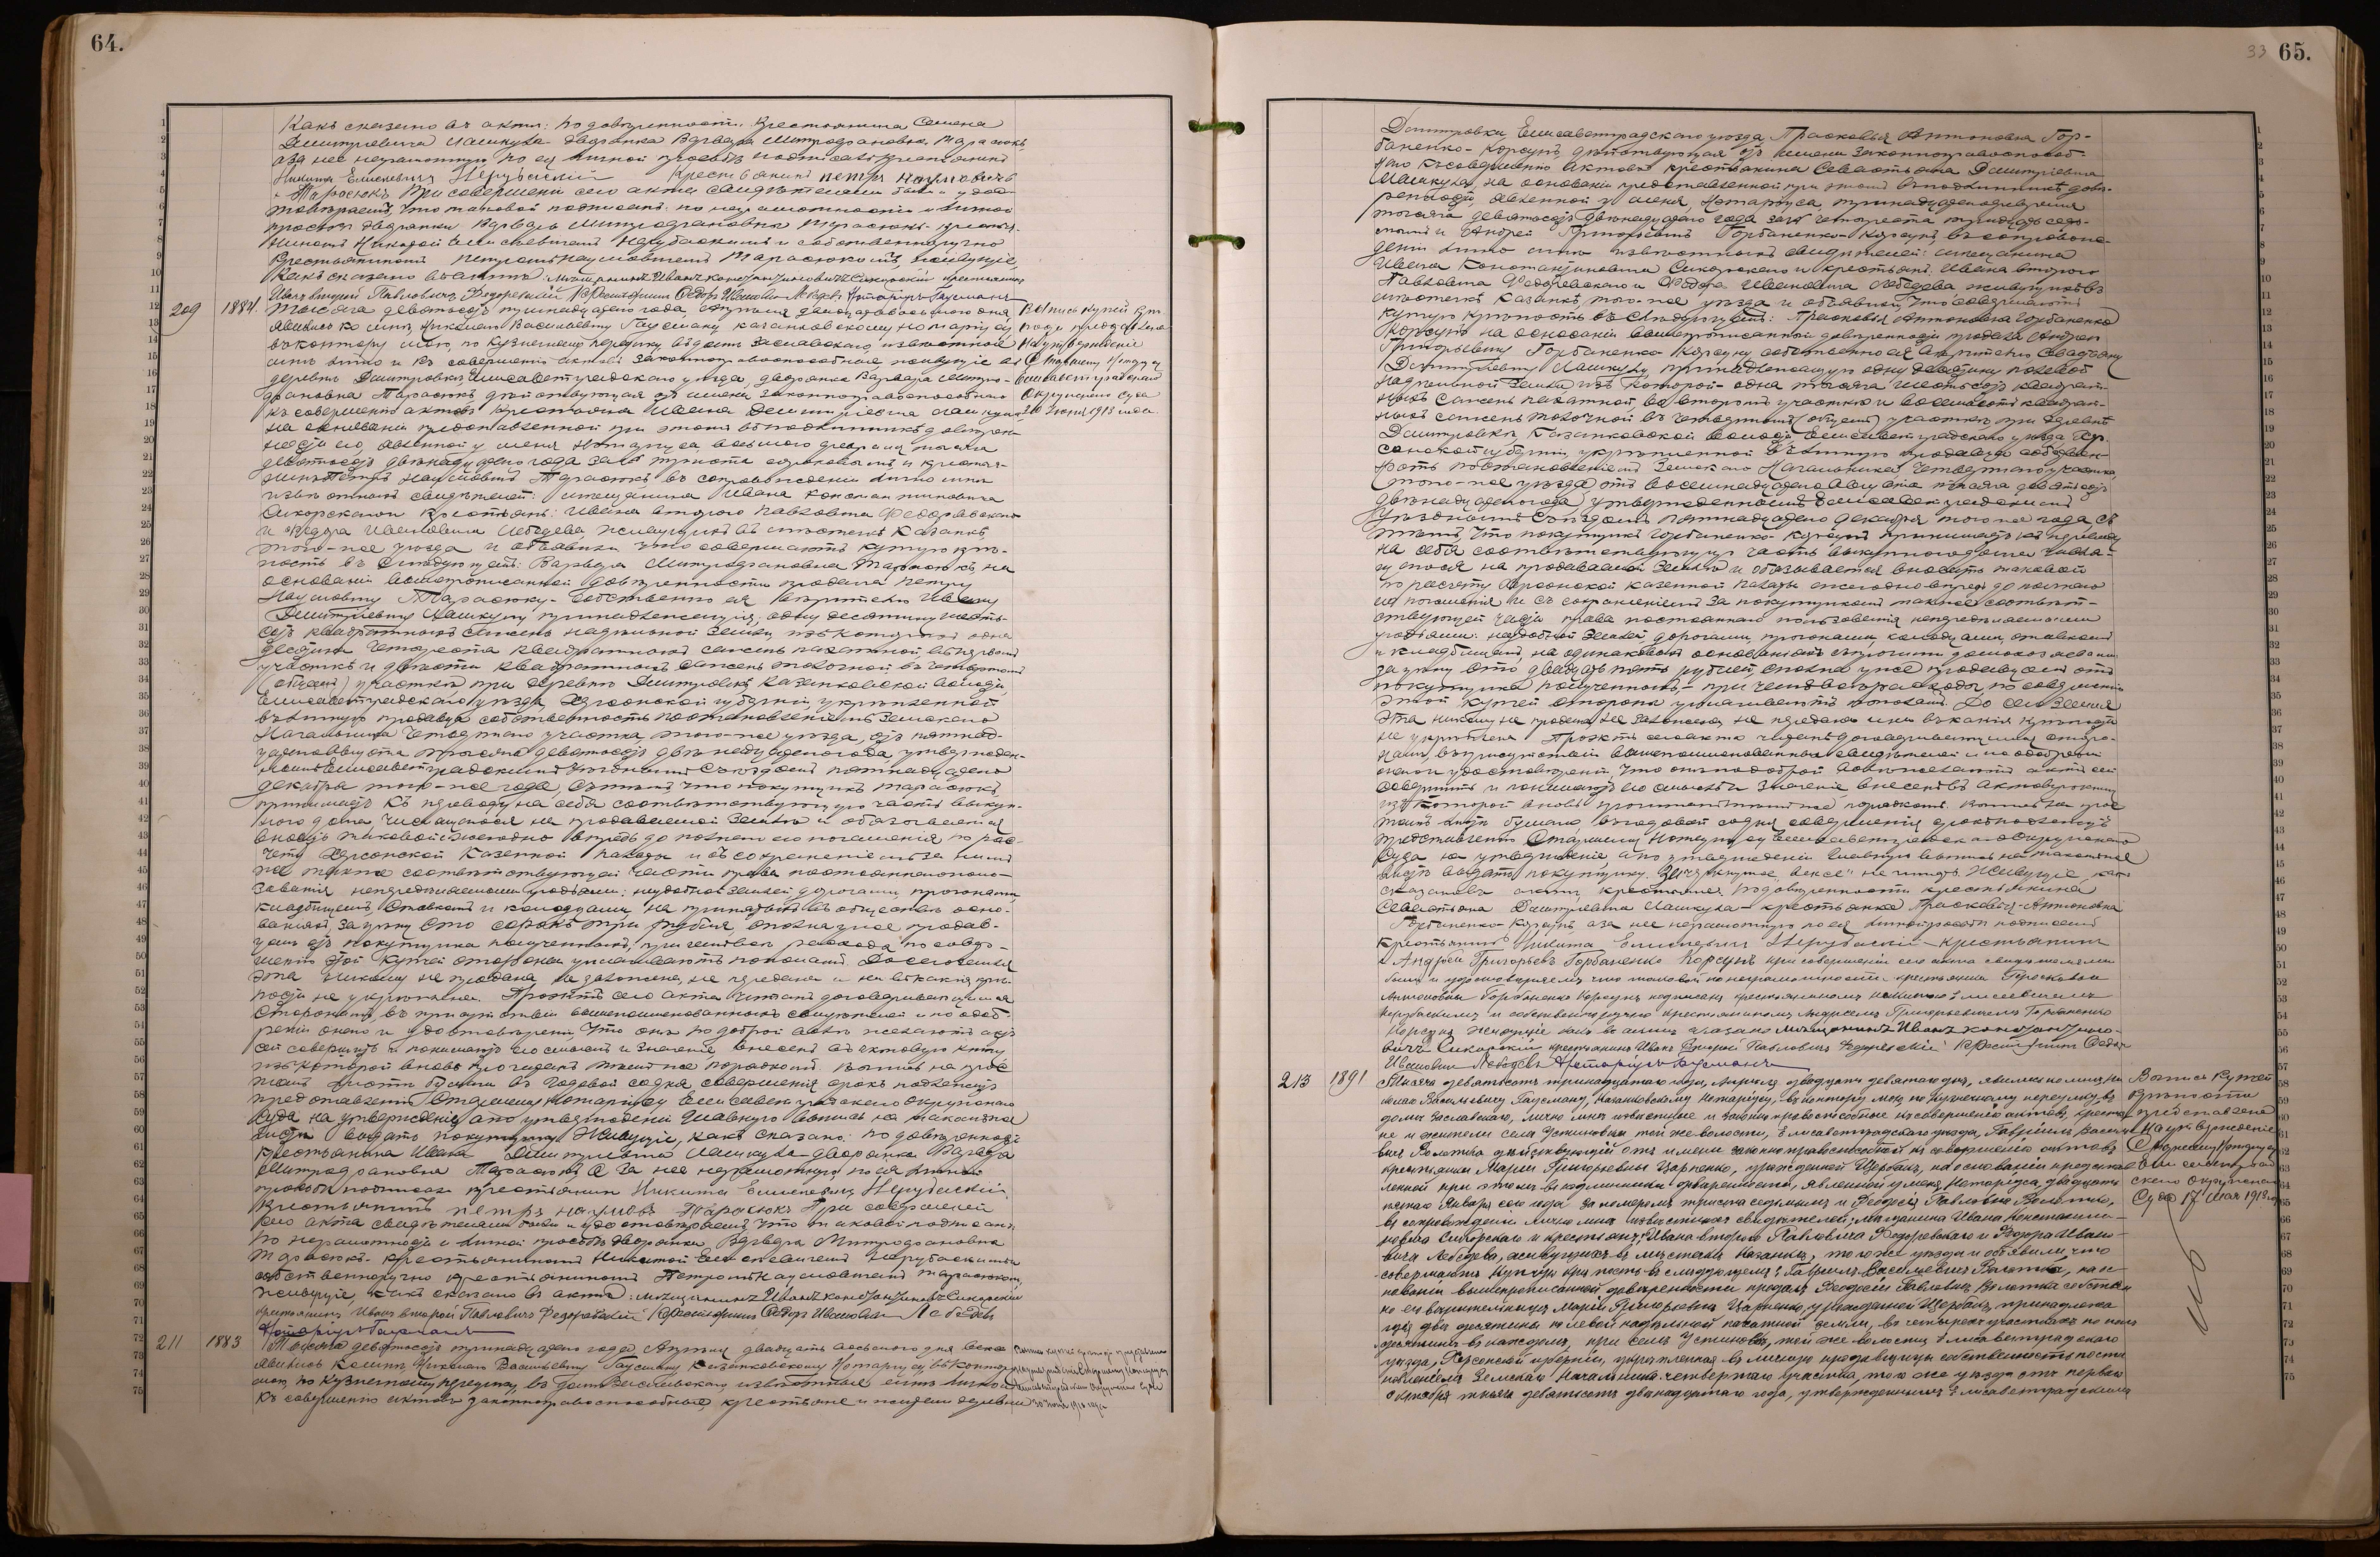 64.
Какъ сказано въ актѣ: по довѣренности Крестьянина Семена
Дмитріевича Лашкула дворянка Варвара Митрофановна Тарасюкъ
а за нее неграмотную по ея личной просьбѣ подписалъ крестьянинъ
Никита Елисеевичъ Нерубаскій Крестьянинъ Петръ Наумовичъ
Тарасюкъ При совершеніи сего акта свидѣтелями были и удос-
товѣряемъ, что таковой подписанъ: по неграмотности и личной
просьбѣ дворянки Варвары Митрофановны Тарасюкъ крестья-
ниномъ Никитой Елисеевичемъ Нерубаскимъ и собственноручно
Крестьяниномъ Петромъ Наумовичемъ Тарасюкомъ, живущіе,
какъ сказано въ актѣ: Мѣщанинъ Иванъ Константиновичъ Сикорскій крестьянинъ
Иванъ второй Павловичъ Федоревскій Крестьянинъ Федоръ Ивановичъ Лебедевъ Нотаріусъ Гаусманъ
209 1884 Тысяча девятьсотъ тринадцатаго года, Апрѣля двадцать восьмого дня
явились ко мнѣ, Николаю Васильевичу Гаусману, казанковскому нотаріусу
въ контору мою, по Кузнечному переулку въ домѣ Заславскаго, извѣстные
мнѣ лично и къ совершенію актовъ законноправоспособные, живущіе въ
деревнѣ Дмитровкѣ, Елисаветградскаго уѣзда, дворянка Варвара Митро-
фановна Тарасюкъ, дѣйствующая отъ имени законноправоспособнаго
къ совершенію актовъ крестьянина Ивана Дмитріевича Лашкула,
на основаніи представленной при этомъ въ подлинникѣ довѣрен-
ности его, явленной у меня, Нотаріуса, восьмого февраля тысяча
девятьсотъ двѣнадцатаго года за № триста сороковымъ и крестья-
нинъ Петръ Наумовичъ Тарасюкъ, въ сопровожденіи лично мнѣ
извѣстныхъ свидѣтелей: мѣщанина Ивана Константиновича
Сикорскаго и крестьянъ: Ивана второго Павловича Федоревскаго
и Федора Ивановича Лебедева, живущихъ въ мѣстечкѣ Казанкѣ,
того-же уѣзда и объявили что совершаютъ купчую крѣ-
пость въ слѣдующемъ: Варвара Митрофановна Тарасюкъ, на
основаніи вышепрописанной довѣренности продала Петру
Наумовичу Тарасюку собственно ея вѣрителю Ивану
Дмитріевичу Лашкулу принадлежащую, одну десятину шесть-
сотъ квадратныхъ сажень надѣльной земли изъ которой одна
десятина четыреста квадратныхъ сажень пахатной въ первомъ
участкѣ и двѣсти квадратныхъ сажень толочной въ четвертомъ
(общемъ) участкѣ, при деревнѣ Дмитровкѣ, Казанковской волости,
Елисаветградскаго уѣзда, Херсонской губерніи, укрѣпленной
въ личную продавца собственность постановленіемъ Земскаго
Начальника четвертаго участка, того-же уѣзда, отъ пятнад-
цатаго Августа тысяча девятьсотъ двѣнадцатаго года, утвержден-
нымъ Елисаветградскимъ Уѣзднымъ Съѣздомъ пятнадцатаго
декабря того-же года, съ тѣмъ что покупщикъ Тарасюкъ,
принимаетъ къ переводу на себя соотвѣтствующую часть выкуп-
ного долга, числящагося на продаваемой землѣ и обязывается
вносить таковой ежегодно впредь до полнаго его погашенія, по рас-
чету Херсонской Казенной Палаты и съ сохраненіемъ за нимъ
же также соотвѣтствующей части права постояннаго поль-
зованія нераздѣльными угодьями: неудобной землей, дорогами, прогонами,
кладбищемъ, ставкомъ и колодцами, на принятыхъ въ обществѣ осно-
ваніяхъ, за цѣну сто сорокъ три рубля, сполна уже продав-
цемъ отъ покупщика полученныхъ, при чемъ всѣ расходы по совер-
шенію этой купчей стороны уплачиваютъ пополамъ. До сего земля
эта никому не продана, не заложена, не передана и ни въ какія крѣ-
пости не укрѣплена. Проэктъ сего акта читанъ договаривающимся
сторонамъ, въ присутствіи вышепоименованныхъ свидѣтелей и по одоб-
реніи онаго и удостовѣреніи, что они по доброй волѣ желаютъ актъ
сей совершить и понимаютъ его смыслъ и значеніе, внесенъ въ актовую книгу
изъ которой вновь прочитанъ тѣмъ же порядкомъ. Выпись на прос-
томъ листѣ бумаги въ годовой со дня совершенія срокъ подлежитъ
представленію Старшему Нотаріусу Елисаветградскаго Окружнаго
Суда на утвержденіе, а по утвержденіи главную выпись на таковомъ же
листѣ выдать покупщику. Живущіе, какъ сказано: по довѣренности
Крестьянина Ивана Дмитріевича Лашкула дворянка Варвара
Митрофановна Тарасюкъ а за нее неграмотную, по ея личной
просьбѣ подписалъ крестьянинъ Никита Елисеевичъ Нерубаскій
Крестьянинъ Петръ Наумовъ Тарасюкъ При совершеніи
сего акта свидѣтелями были и удостовѣряемъ, что таковой подписанъ
по неграмотности и личной просьбѣ дворянки Варвары Митрофановны
Тарасюкъ крестьяниномъ Никитой Елисеевичемъ Нерубаскимъ и
собственноручно крестьяниномъ Петромъ Наумовичемъ Тарасюкомъ,
живущіе, какъ сказано въ актѣ: мѣщанинъ Иванъ Константиновичъ Сикорскій
крестьянинъ Иванъ второй Павловичъ Федоревскій Крестьянинъ Федоръ Ивановичъ Лебедевъ
Нотаріусъ Гаусманъ
211 1883 Тысяча девятьсотъ тринадцатаго года Апрѣля двадцать восьмого дня
явились ко мнѣ, Николаю Васильевичу Гаусману, Казанковскому Нотаріусу, въ контору
мою, по Кузнечному переулку, въ домѣ Заславскаго, извѣстные мнѣ лично и
къ совершенію актовъ законноправоспособные, крестьяне и жители деревни
Выпись купчей крѣ-
пости представлена
на утвержденіе
Старшему Нотаріусу
Елисаветградскаго
Окружнаго Суда
10 Іюня 1913 года
33 65.
Дмитровки, Елисаветградскаго уѣзда, Прасковья Антоновна Гор-
баненко-Корсунъ, дѣйствующая отъ имени законноправоспособ-
наго къ совершенію актовъ крестьянина Севастьяна Дмитріевича
Лашкула, на основаніи представленной при этомъ въ подлинникѣ довѣ-
ренности, явленной у меня, Нотаріуса,
тысяча девятьсотъ двѣнадцатаго года за № четыреста тридцать седь-
мымъ и Андрей Григорьевичъ Горбаненко-Корсунъ, въ сопровож-
деніи лично мнѣ извѣстныхъ свидѣтелей: мѣщанина
Ивана Константиновича Сикорскаго и крестьянъ: Ивана второго
Павловича Федоревскаго и Федора Ивановича Лебедева, живущихъ въ
мѣстечкѣ Казанкѣ, того-же уѣзда и объявили, что совершаютъ
купчую крѣпость въ слѣдующемъ: Прасковья Антоновна Горбаненко
Корсунъ на основаніи вышепрописанной довѣренности продала Андрею
Григорьевичу Горбаненко-Корсуну собственно ея вѣрителю Севастьяну
Дмитріевичу Лашкулу, принадлежащую одну десятину полевой
надѣльной земли изъ которой- одна тысяча шестьсотъ квадрат-
ныхъ сажень пахатной, во второмъ участкѣ и восемьсотъ квадрат-
ныхъ сажень толочной въ четвертомъ (общемъ) участкѣ при деревнѣ
Дмитровкѣ, Казанковской волости, Елисаветградскаго уѣзда Хер-
сонской губерніи, укрѣпленной въ личную продавца собствен-
ность постановленіемъ Земскаго Начальника четвертаго участка,
того-же уѣзда отъ восемнадцатаго Августа тысяча девятьсотъ
двѣнадцатаго года, утвержденнымъ Елисаветградскимъ
Уѣзднымъ Съѣздомъ пятнадцатаго декабря того-же года, съ
тѣмъ, что покупщикъ Горбаненко-Корсунъ принимаетъ къ переводу
на себя соотвѣтствующую часть выкупного долга числя-
щагося на продаваемой землѣ и обязывается вносить таковой
по расчету Херсонской казенной палаты ежегодно впредь до полнаго
его погашенія и съ сохраненіемъ за покупщикомъ также соотвѣт-
ствующей части права постояннаго пользованія нераздѣльными
угодьями: неудобной землей, дорогами, прогонами, колодцами, ставкомъ
и кладбищемъ, на одинаковыхъ основаніяхъ съ прочими домохозяевами
за цѣну сто двадцать пять рублей, сполна уже продавцемъ отъ
покупщика полученныхъ,- при чемъ всѣ расходы по совершенію
этой купчей стороны уплачиваютъ пополамъ. До сего земля
эта никому не продана, не заложена, не передана и ни въ какія крѣпости
не укрѣплена. Проэктъ сего акта читанъ договаривающимся сторо-
намъ, въ присутствіи вышепоименованныхъ свидѣтелей и по одобреніи
онаго и удостовѣреніи, что они по доброй волѣ желаютъ актъ сей
совершить и понимаютъ его смыслъ и значеніе внесенъ въ актовую книгу
изъ которой вновь прочитанъ тѣмъ же порядкомъ. Выпись на прос-
томъ листѣ бумаги въ годовой со дня совершенія срокъ подлежитъ
представленію Старшему Нотаріусу Елисаветградскаго Окружнаго
Суда на утвержденіе, а по утвержденіи главную выпись на таковомъ же
листѣ выдать покупщику. не читать. Живущіе, какъ
сказано въ актѣ, крестьяне: по довѣренности крестьянина
Севастьяна Дмитріевича Лашкула крестьянка Прасковья Антоновна
Горбаненко-Корсунъ, а за нее неграмотную по ея личной просьбѣ подписалъ
Крестьянинъ Никита Елисеевичъ Нерубаскій Крестьянинъ
Андрей Григорьевъ Горбаненко Корсунъ При совершеніи сего акта свидѣтелями
были и удостовѣряемъ, что таковой по неграмотности крестьянки Прасковьи
Антоновны Горбаненко Корсунъ подписанъ крестьяниномъ Никитою Елисеевичемъ
Нерубаскимъ и собственноручно крестьяниномъ Андреемъ Григорьевичемъ Горбаненко
Корсунъ Живущіе какъ въ актѣ сказано Мѣщанинъ Иванъ Константино-
вичъ Сикорскій крестьянинъ Иванъ Второй Павловичъ Федоревскій Крестьянинъ Федоръ
Ивановичъ Лебедевъ Нотаріусъ Гаусманъ
213 1891 Тысяча девятьсотъ тринадцатаго года, Апрѣля двадцать девятаго дня, явились ко мнѣ, Ни-
колаю Васильевичу Гаусману, Казанковскому Нотаріусу, въ контору мою, по Кузнечному переулку, въ
домѣ Заславскаго, лично мнѣ извѣстные и законноправоспособные къ совершенію актовъ, крестья-
не и жители села Устиновки той же волости, Елисаветградскаго уѣзда, Гавріилъ Василье-
вичъ Волотка дѣйствующій отъ имени законноправоспособной къ совершенію актовъ
крестьянки Маріи Григорьевны Царненко, урожденной Щербань, на основаніи представ-
ленной при этомъ въ подлинникѣ довѣренности, явленной у меня, Нотаріуса, двадцать
пятаго Января сего года за номеромъ триста седьмымъ и Феодосій Павловичъ Волотка,
въ сопровожденіи лично мнѣ извѣстныхъ свидѣтелей: мѣщанина Ивана Константи-
новича Сикорскаго и крестьянъ: Ивана второго Павловича Федоревскаго и Федора Ивано-
вича Лебедева, живущихъ въ мѣстечкѣ Казанкѣ, того же уѣзда и объявили, что
совершаютъ купчую крѣпость въ слѣдующемъ: Гавріилъ Васильевичъ Волотка, на ос-
нованіи вышепрописанной довѣренности продалъ Феодосію Павловичу Волотка собствен-
но его вѣрительницѣ Маріи Григорьевнѣ Царненко, урожденной Щербань, принадлежа-
щія двѣ десятины полевой надѣльной пахатной земли, въ четырехъ участкахъ по полъ
десятины въ каждомъ, при селѣ Устиновкѣ, той же волости, Елисаветградскаго
уѣзда, Херсонской губерніи, укрѣпленная въ личную продавщицы собственность поста-
новленіемъ Земскаго Начальника четвертаго участка, того же уѣзда отъ перваго
октября тысяча девятьсотъ двѣнадцатаго года, утвержденнымъ Елисаветградскимъ
Выпись купчей
крѣпости
представлена
на утвержденіе
Старшему Нотаріусу
Елисаветград-
скаго Окружнаго
Суда 17 Мая 1913 г.